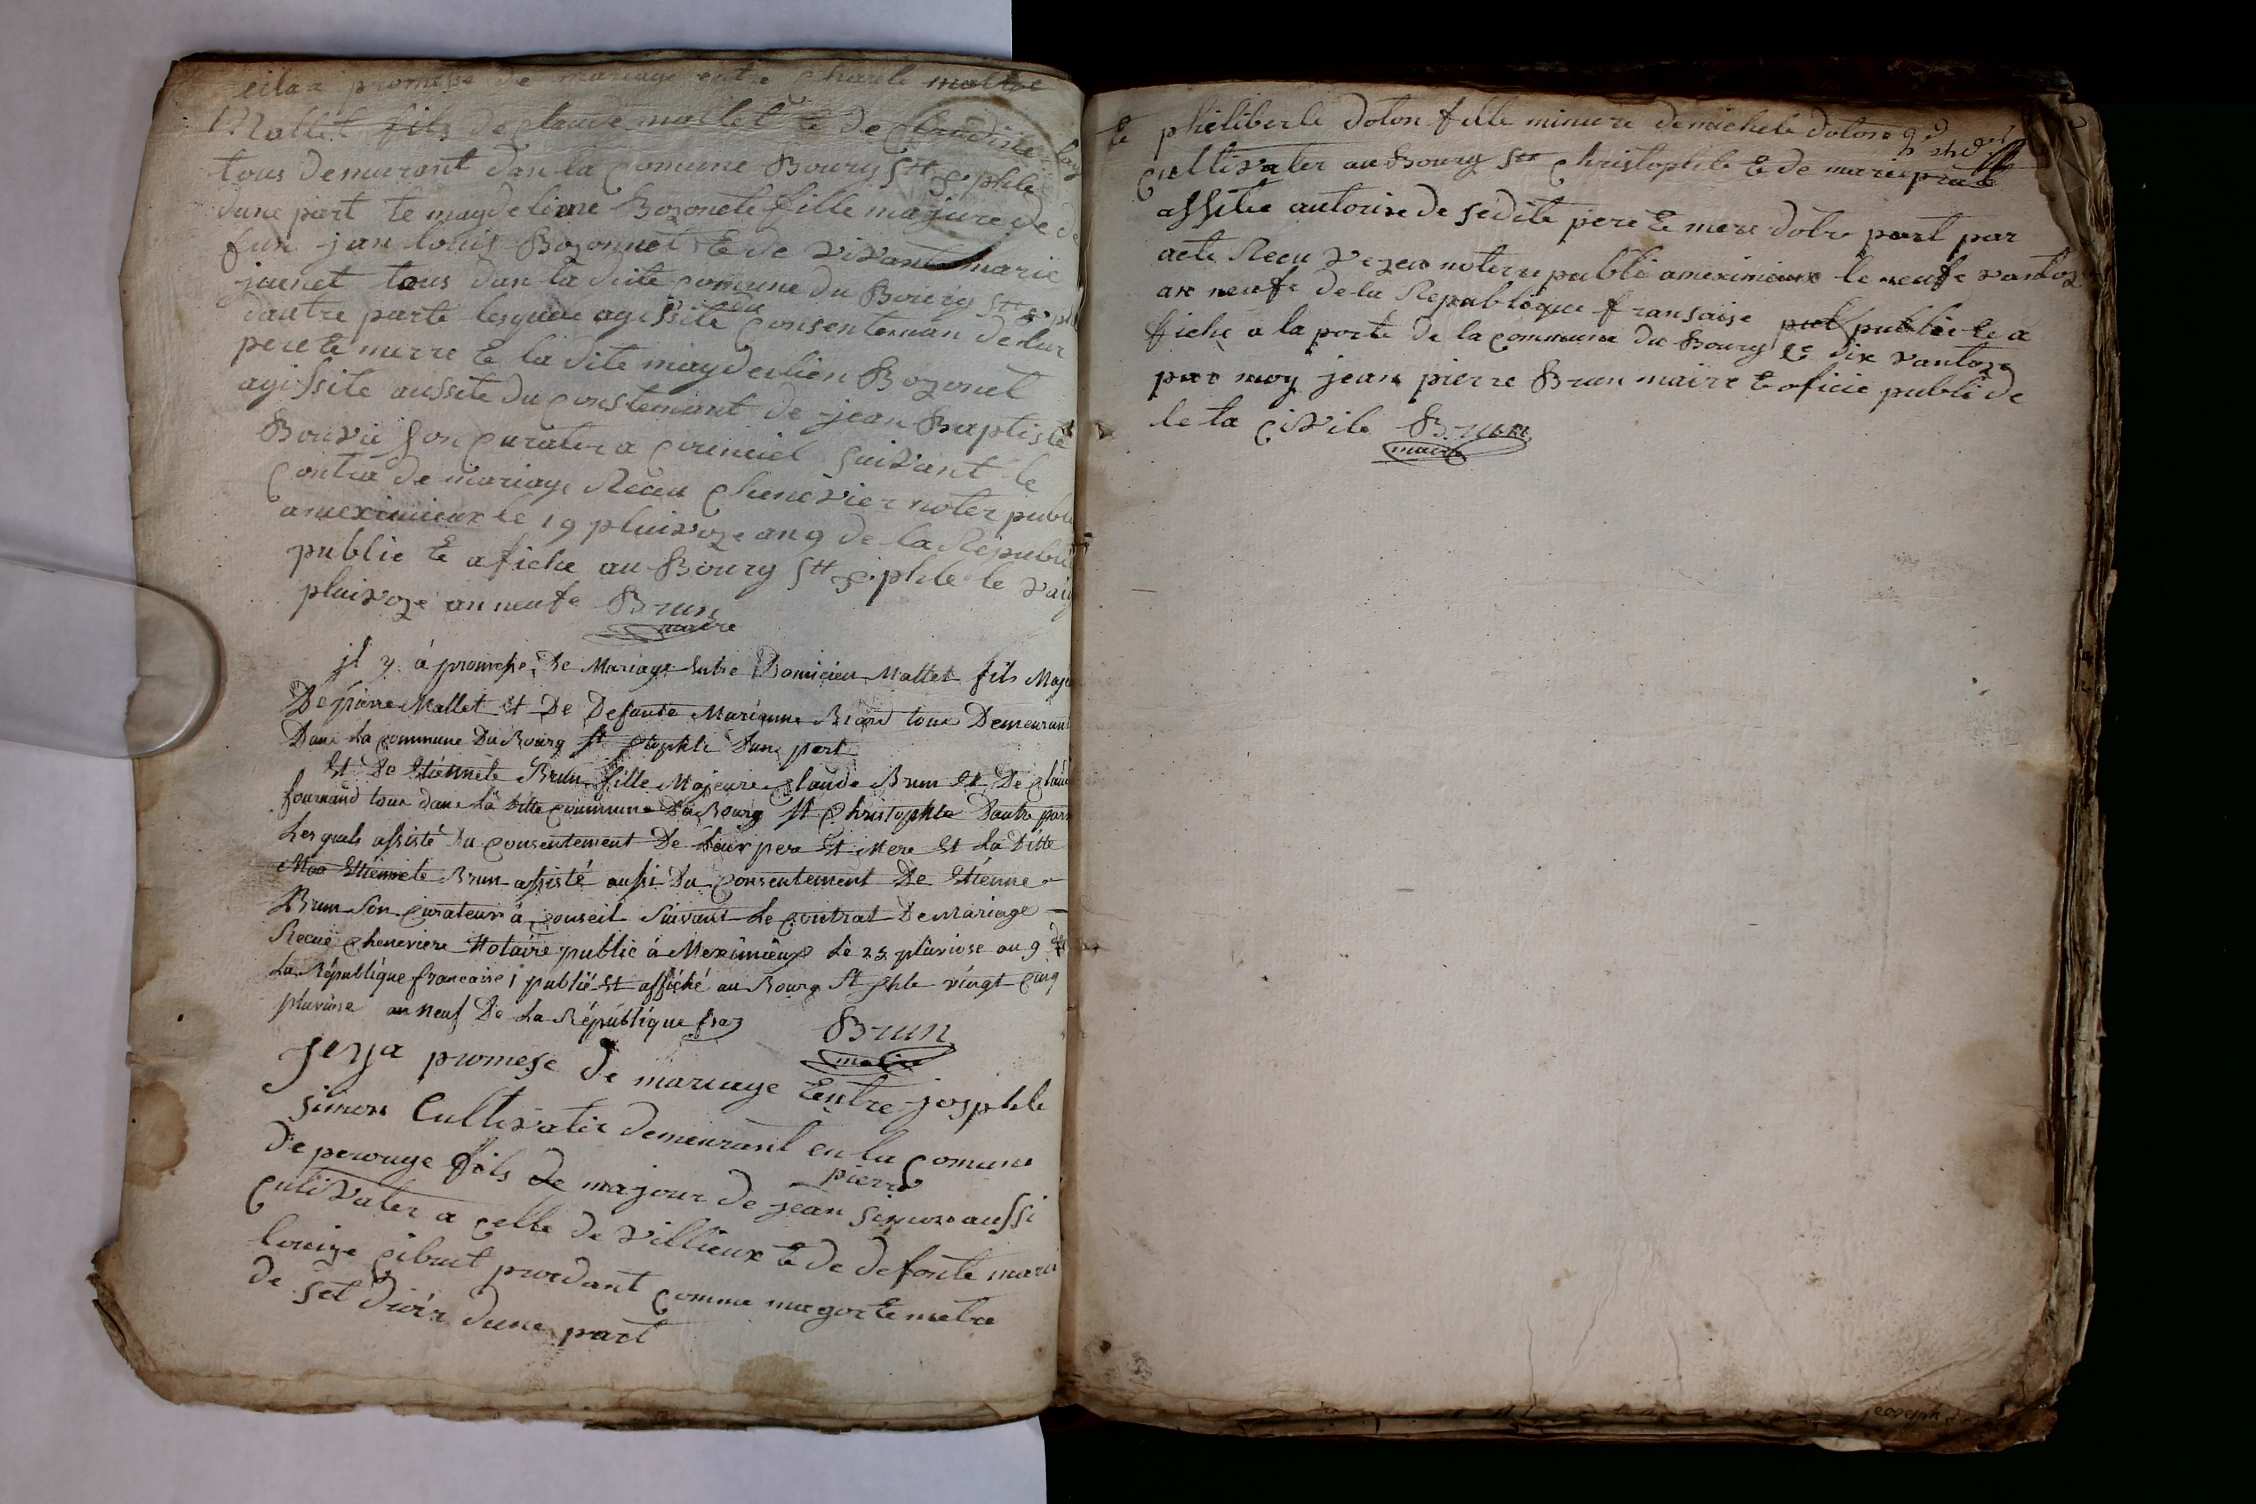 eila promesse de mariage entre Charle maltre
Mallet fils de Claude mallet te de Claudine
tous demurant dan la Comune Bourg Stt Xphle
dune part te magdelene Bozonete fille majure de
fun jan louis Bozonnet te de vivante marie
jaenet tous dan la dite Comune du Bourg Stt Xphle
dautre parte lesquue agissite du Consentenan de lur
pere te merre te la dite magdeilien Bozonet
agissite aussite du Constemant de jean Baptiste
Bouvié son Curater a Coreneiel suivant le
Contra de mariage Receu Chenevier noter publi
a meximieux le 19 pluivoze an 9 de la Republi
public te afiche au Bourg Stt Xphle le vaig
pluivoze an neufe Brun
maire
jl y á promesse De Mariage Entre Domicien Mallet fils Maje
De pierre Mallet Et De Defunte Marianne Biard tous Demeurant
Dans La Commune Du Bourg St Xtophle Dune part
Et De Etiennete Brun fille Majeure Claude Brun Et De Claud
fournand tous dans La Ditte Commune Du Bourg St Christophle Dautre part
Lesquels assisté Du Consentement De Leur pere Et Mere Et La Ditte
Maa Etiennete Brun assisté aussi Du Consentement De Etienne
Brun Son Curateur á Conseil Suivant Le Contrat De Mariage
Recue Cheneviere Notaire public á Meximieux Le 25 pluviose an 9 de
La République francaise ; publié Et affiché au Bourg St Xphle vingt Cinq
pluviose an Neuf De La République fraz Brun
maire
Jeyja promese de mariage Eentre josphle
simon Cultivatir demeurant en la Comune
de perouge fils de majour de jean pierre simon aussi
Cultivater a Celle de Villieux te de defonte maria
louige Cibuet prosedant Comme magor te metre
de set droir dune part
te pheliberte dolon fille minure de michele dolon
Cultivater au Bourg Stt Christophle te de marie prat
assitée autorise de sedite pere te mere dotre part par
acte Receu Vezeu notere publi a meximieux le neufe vantoz
an neufe de la Republique fransaise pub publié te a
fiché a la porte de la Commune du Bourg Ce dix vantoze
par moy jean pierre Brun maire te oficie publi de
le ta Civile Brun
maire